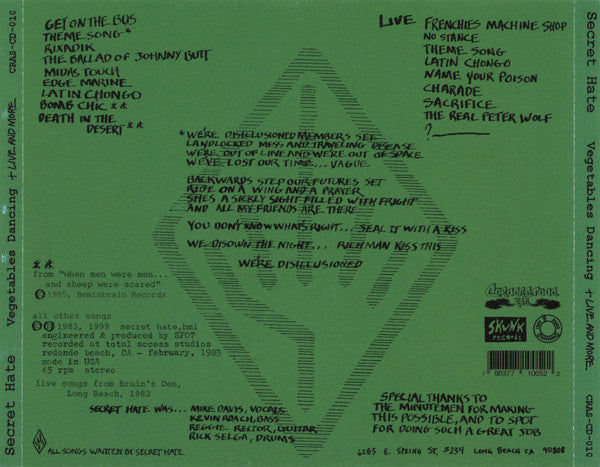 Secret Hate Vegetables Dancing + LIVE AND MORE CRAS-CD-010
GET ON THE BUS
THEME SONG *
RIXADIK
THE BALLAD OF JOHNNY BUTT
MIDAS TOUCH
EDGE MARINE
LATIN CHONGO
BOMB CHIC **
DEATH IN THE
DESERT **
LIVE
FRENCHIES MACHINE SHOP
NO STANCE
THEME SONG
LATIN CHONGO
NAME YOUR POISON
CHARADE
SACRIFICE
THE REAL PETER WOLF
?
* WE'RE DISCLUSIONED MEMBERS SEE
LANDLOCKED MESS AND TRAVELING DISEASE
WE'RE OUT OF LINE AND WE'RE OUT OF SPACE
WE'VE LOST OUR TIME... VAGUE.
BACKWARDS STEP OUR FUTURES SET
RIDE ON A WING AND A PRAYER
SHES A SICKLY SIGHT FILLED WITH FRIGHT
AND ALL MY FRIENDS ARE THERE
YOU DON'T KNOW WHATS RIGHT... SEAL IT WITH A KISS
WE DISOWN THE NIGHT... RICH MAN KISS THIS
WE'RE DISCLUSIONED
**
from "when men were men...
and sheep were scared"
© 1985, Bemisbrain Records
all other songs
℗© 1983, 1999 secret hate,bmi
engineered & produced by SPOT
recorded at total access studios
redondo beach, CA - february, 1983
made in USA
45 rpm stereo
live songs from Bruin's Den,
Long Beach, 1982
SECRET HATE WAS... MIKE DAVIS, VOCALS
KEVIN ROACH, BASS
REGGIE RECTOR, GUITAR
RICK SELGA, DRUMS
ALL SONGS WRITTEN BY SECRET HATE.
SKUNK
records
7 86377 10052 2
SPECIAL THANKS TO
THE MINUTEMEN FOR MAKING
THIS POSSIBLE, AND TO SPOT
FOR DOING SUCH A GREAT JOB
6285 E. SPRING ST. #234 LONG BEACH CA 90808
Secret Hate Vegetables Dancing + LIVE AND MORE CRAS-CD-010